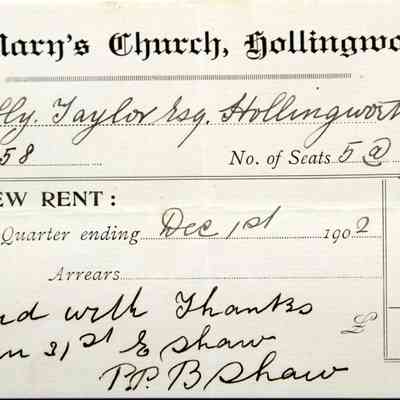 Mary's Church, Hollingwo
lly. Taylor Esq. Hollingworth
58 No. of Seats 5 @
EW RENT:
Quarter ending Dec 1st 1902
Arrears
with Thanks
31st E Shaw
P.P. B Shaw
£